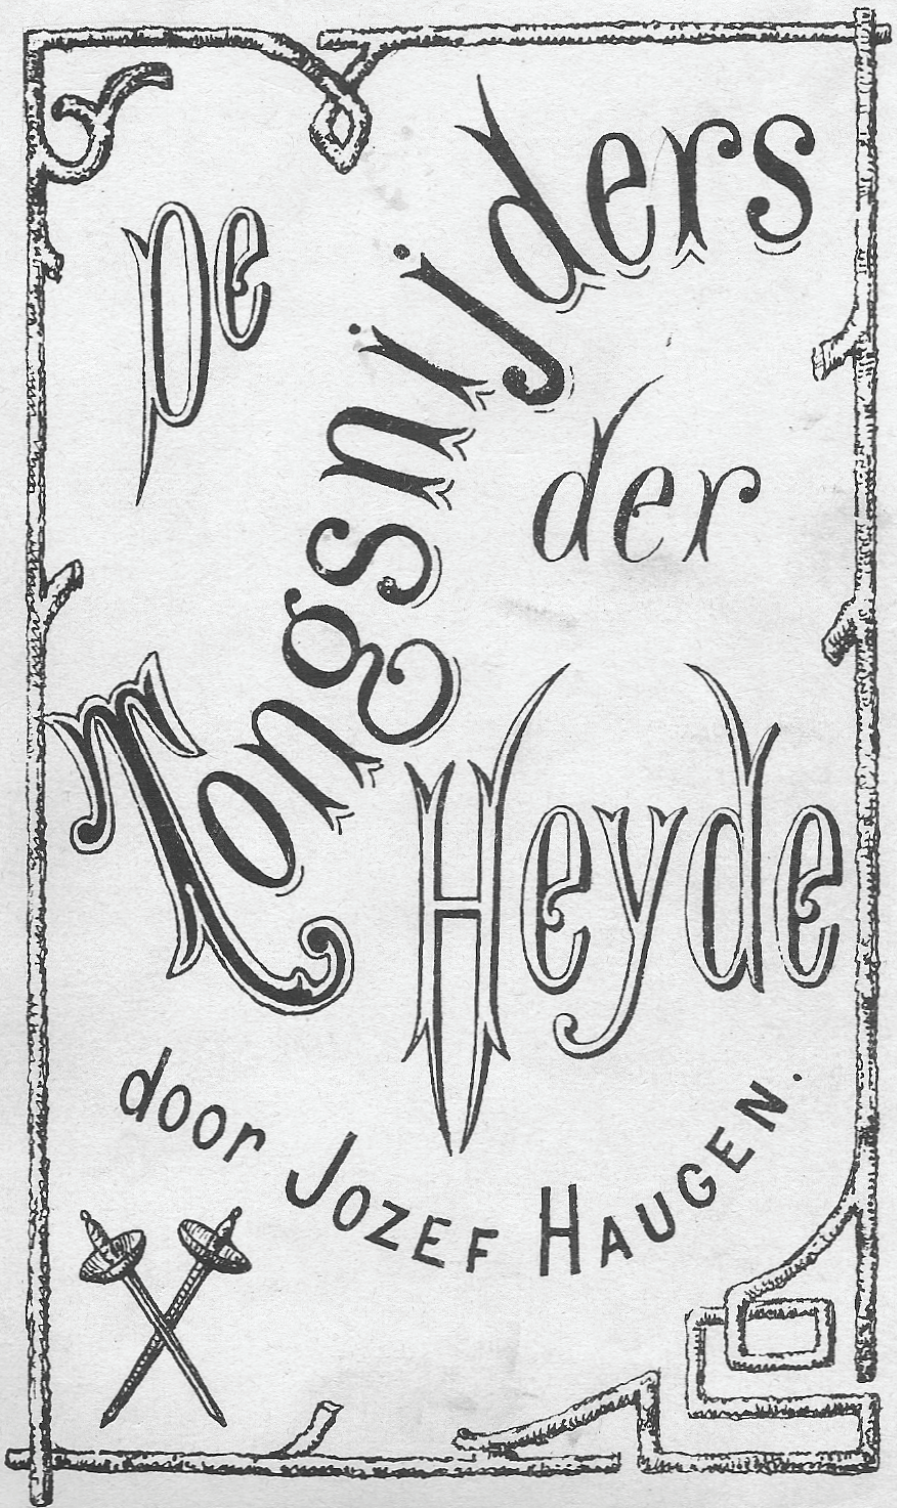 De
Tongsnijders
der
Heyde
door JOZEF HAUGEN.